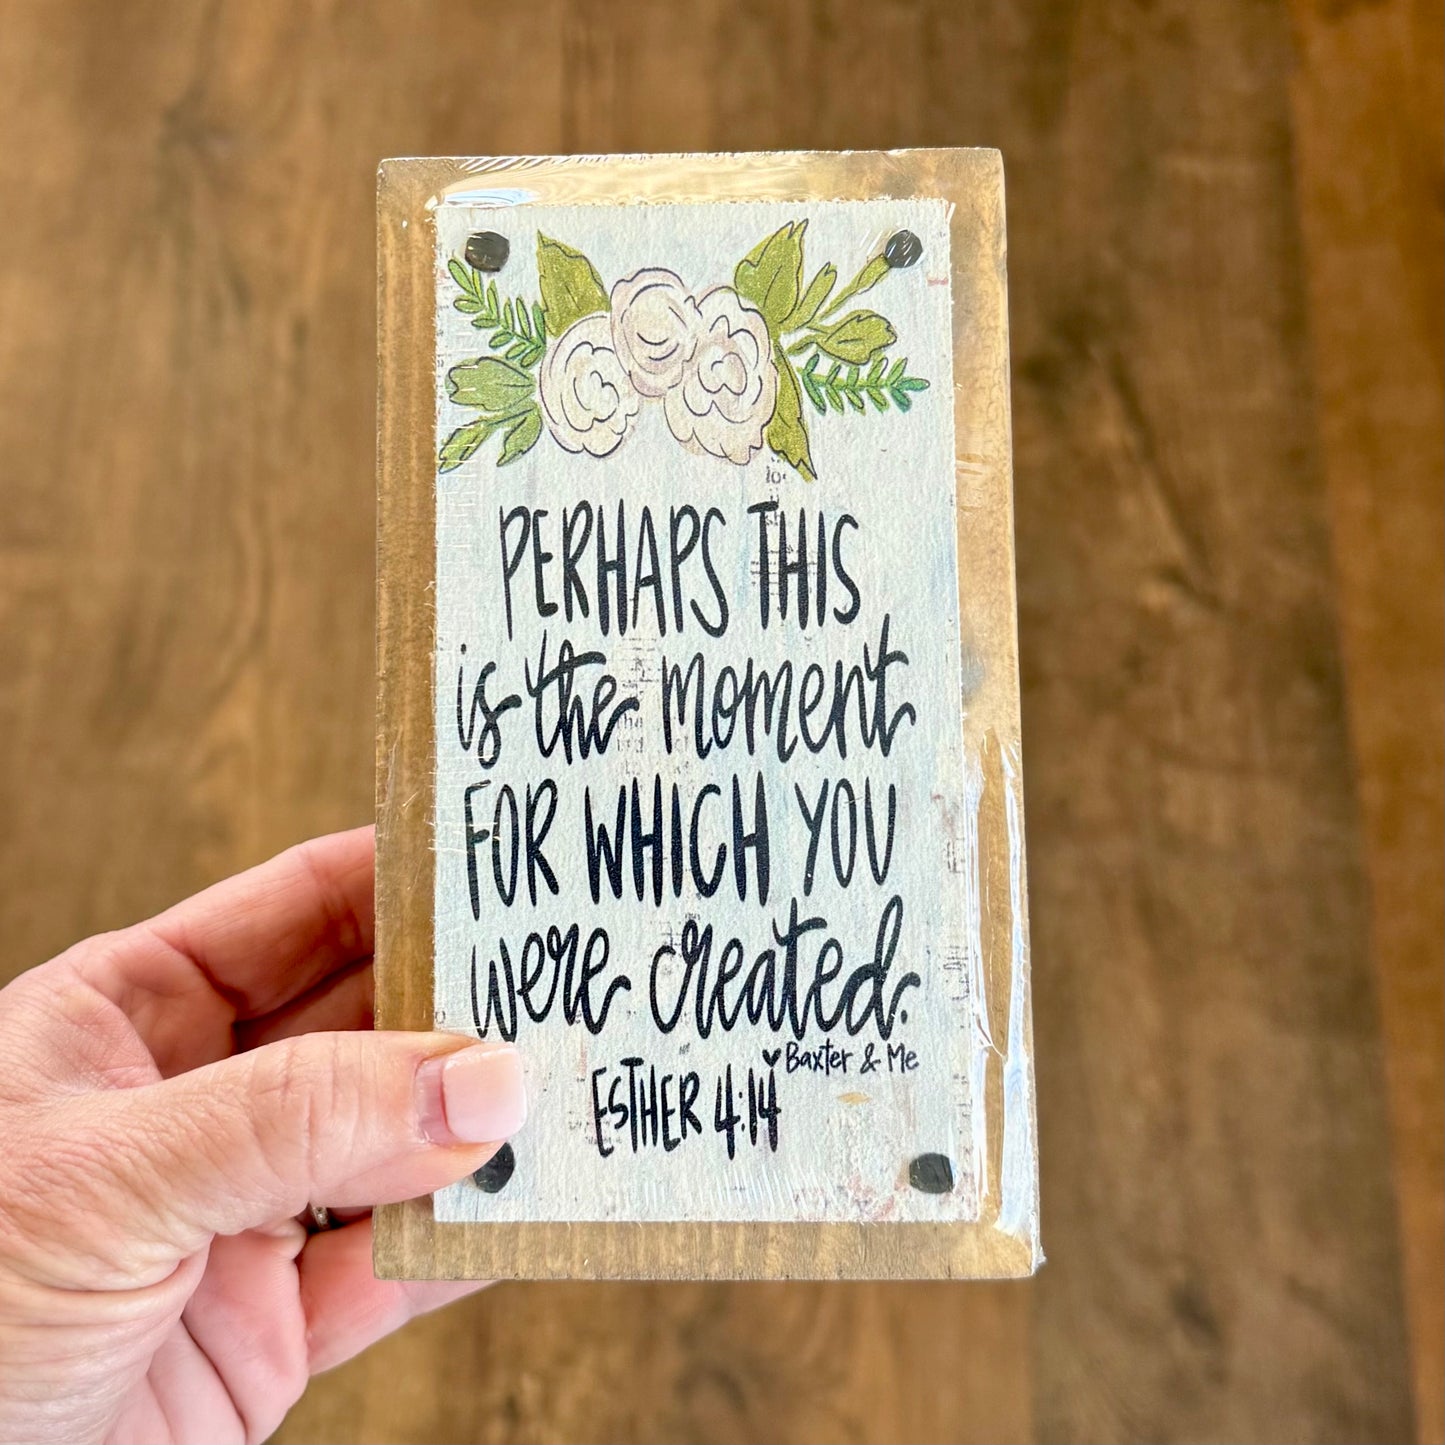 PERHAPS THIS
is the moment
FOR WHICH YOU
were created.
Baxter & Me
ESTHER 4:14